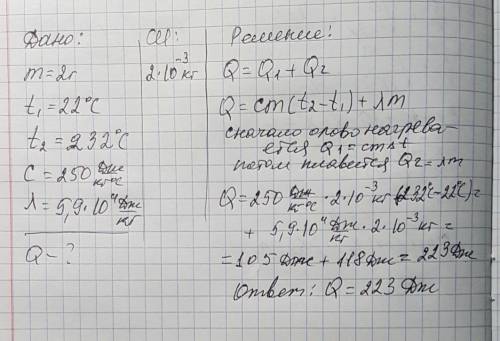 Дано:
m=2г
t₁=22°C
t₂=232°C
C=250 Дж/кг°C
λ=5,9·10⁴ Дж/кг
Q-?
СИ:
2·10⁻³кг
Решение:
Q=Q₁+Q₂
Q=cm(t₂-t₁)+λm
сначало олово нагрева-
ется Q₁=cmΔt
потом плавется Q₂=λm
Q=250 Дж/кг°C·2·10⁻³кг(232°C-22°C)+
+5,9·10⁴ Дж/кг·2·10⁻³кг=
=105Дж+118Дж=223Дж
Ответ: Q=223Дж